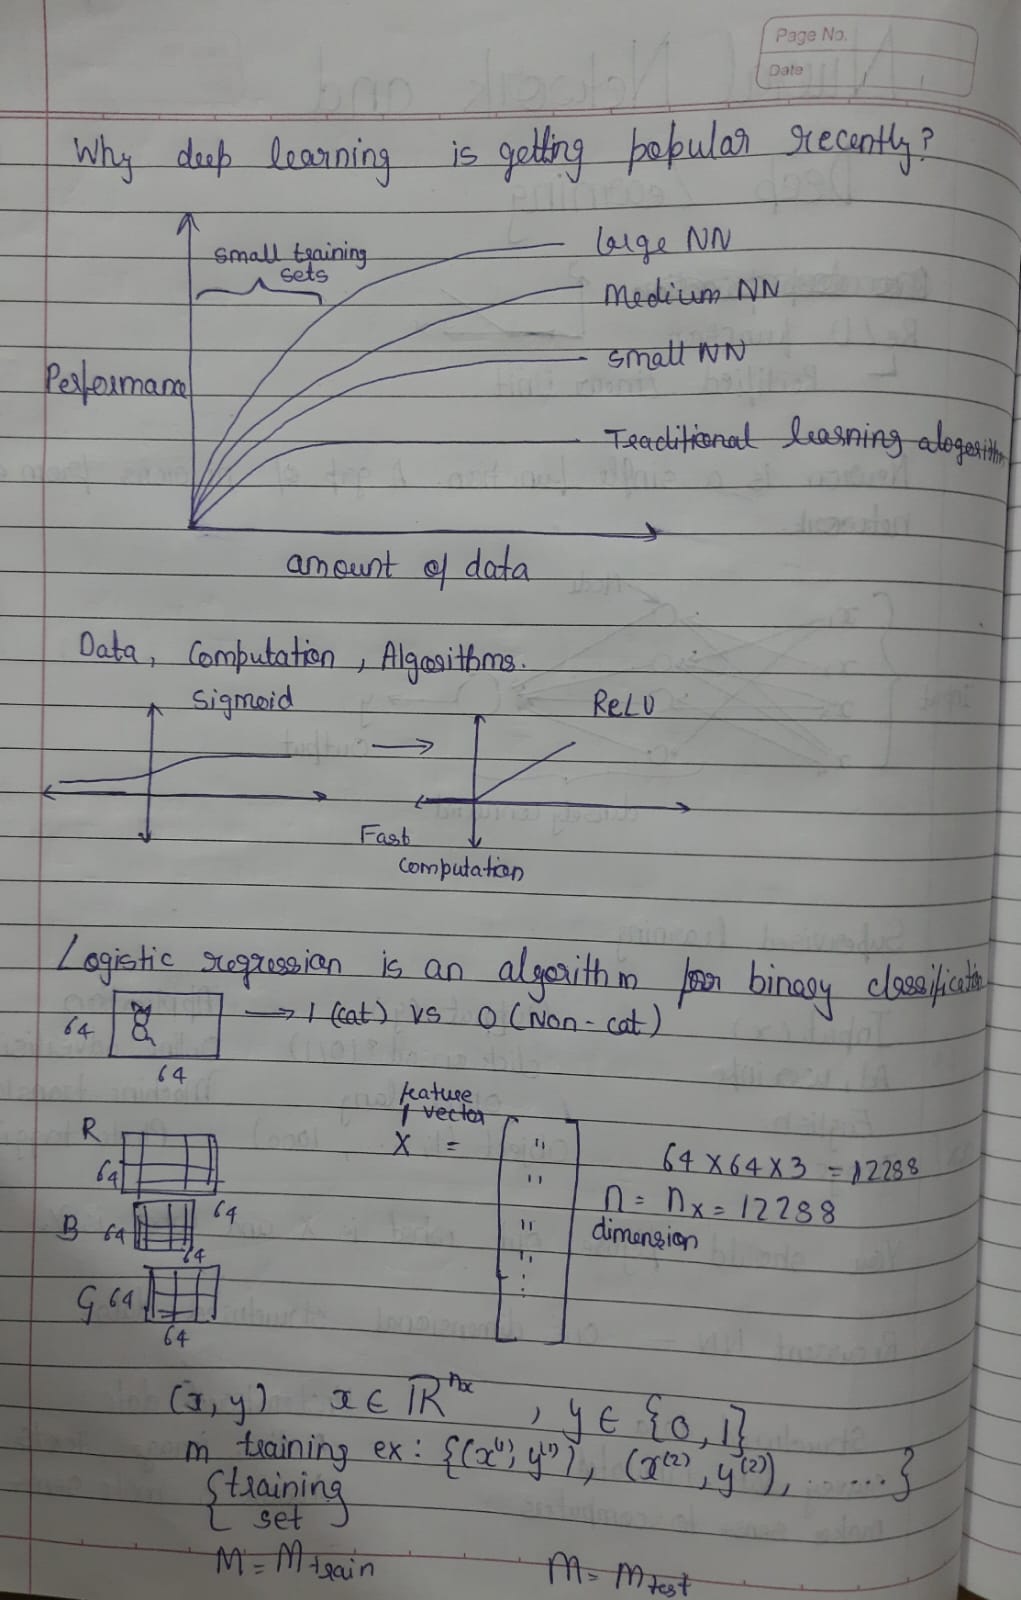 Page No.
Date
Why deep learning is getting popular recently?
small training
sets
large NN
Medium NN
small NN
Performance
Traditional learning alogorithm
amount of data
Data, Computation, Algorithms.
Sigmoid
ReLU
Fast
computation
Logistic regression is an algorithm for binary classification
64
→ 1 (cat) vs 0 (Non-cat)
64
feature
vector
R
X =
64
64 X 64 X 3 = 12288
64
n = nx = 12288
B
64
64
dimension
G
64
64
(x, y) x ∈ ℝ^nx , y ∈ {0, 1}
m training ex: {(x⁽¹⁾, y⁽¹⁾), (x⁽²⁾, y⁽²⁾), ......}
{training
set }
M = M train
m = m test